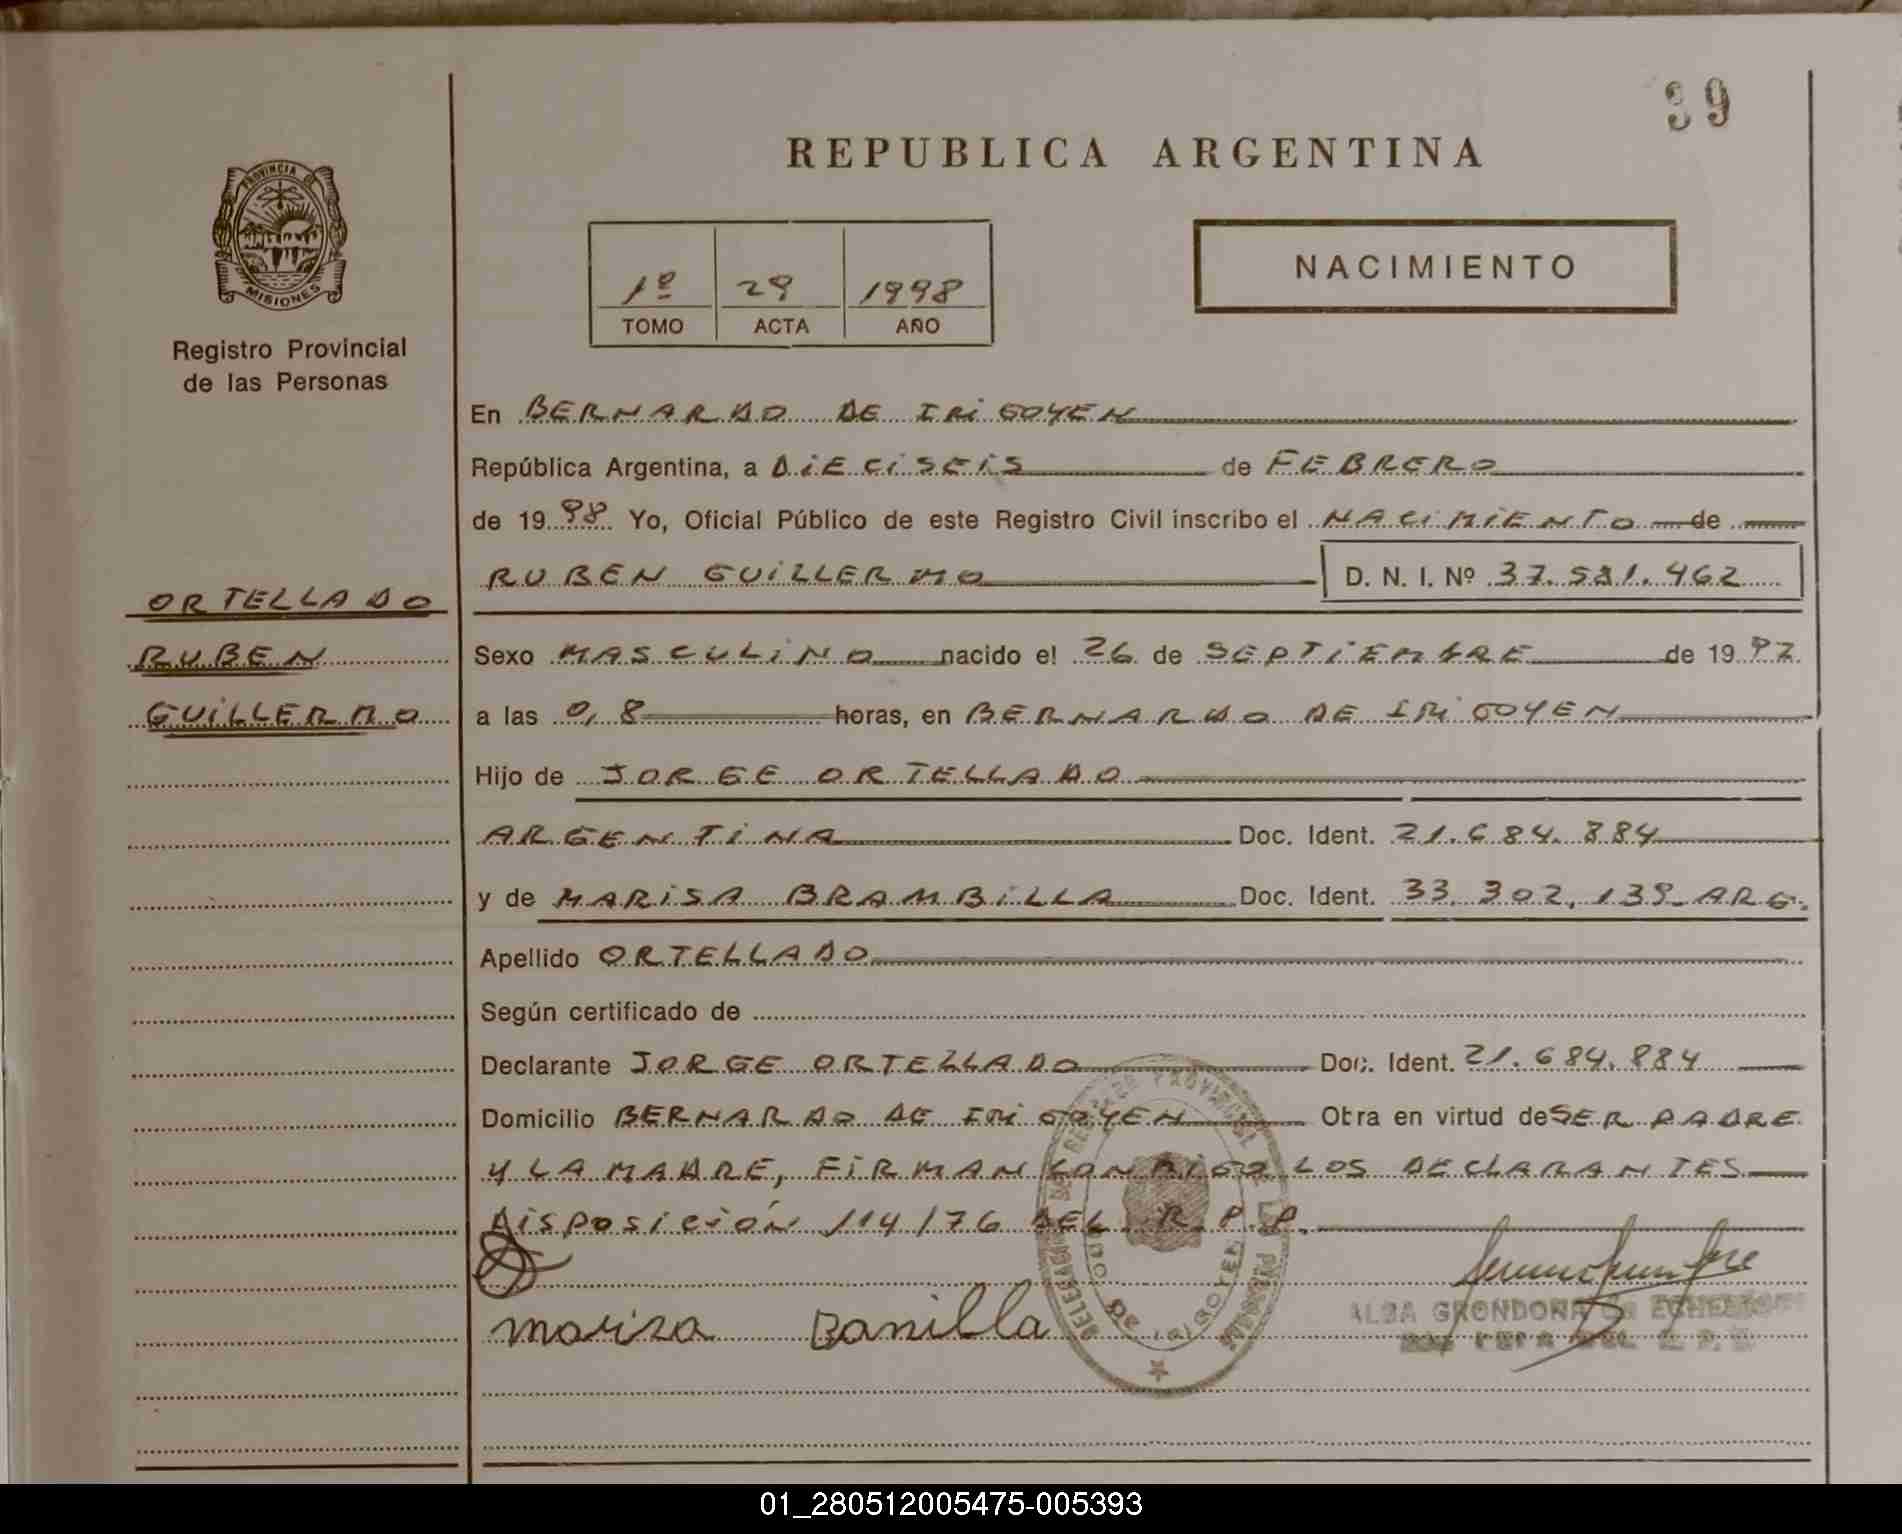 39
REPUBLICA ARGENTINA
PROVINCIA DE
MISIONES
Registro Provincial
de las Personas
1º 29 1998
TOMO ACTA AÑO
NACIMIENTO
En BERNARDO DE IRIGOYEN
República Argentina, a DIECISEIS de FEBRERO
de 1998 Yo, Oficial Público de este Registro Civil inscribo el NACIMIENTO de
RUBEN GUILLERMO D. N. I. Nº 37.581.462
ORTELLADO
RUBEN
GUILLERMO
Sexo MASCULINO nacido el 26 de SEPTIEMBRE de 1997
a las 0,8 horas, en BERNARDO DE IRIGOYEN
Hijo de JORGE ORTELLADO
ARGENTINA Doc. Ident. 21.684.884
y de MARISA BRAMBILLA Doc. Ident. 33.302.139-ARG.
Apellido ORTELLADO
Según certificado de
Declarante JORGE ORTELLADO Doc. Ident. 21.684.884
Domicilio BERNARDO DE IRIGOYEN Obra en virtud de SER PADRE
Y LA MADRE, FIRMAN CONMIGO LOS DECLARANTES
DISPOSICIÓN 114/76 DEL R.P.P.
mariza Banilla
ALBA GRONDONA DE
01_280512005475-005393